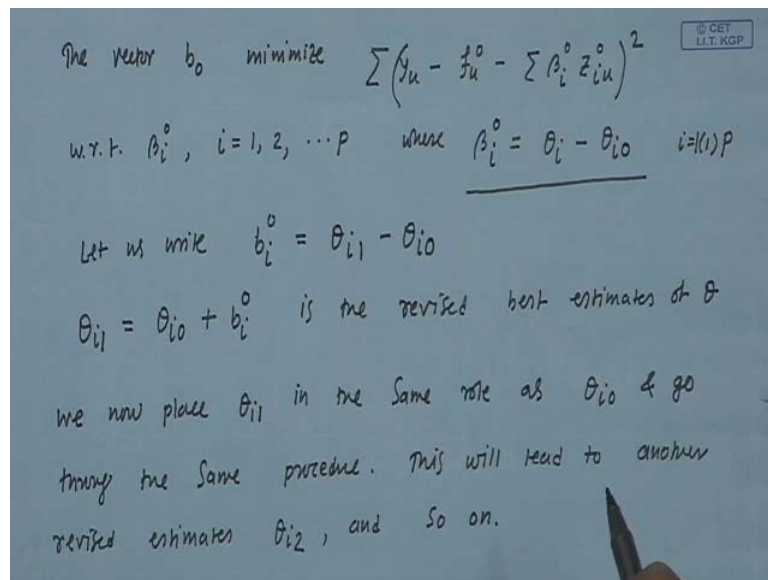 © CET
I.I.T. KGP
The vector b₀ minimize Σ(yᵤ - fᵤ⁰ - Σ βᵢ⁰ Zᵢᵤ⁰)²
w.r.t. βᵢ⁰, i = 1, 2, ... p where βᵢ⁰ = θᵢ - θᵢ₀ i=1(1)p
Let us write bᵢ⁰ = θᵢ₁ - θᵢ₀
θᵢ₁ = θᵢ₀ + bᵢ⁰ is the revised best estimates of θ
we now place θᵢ₁ in the same role as θᵢ₀ & go
throug the same procedue. This will lead to another
revised estimates θᵢ₂, and so on.